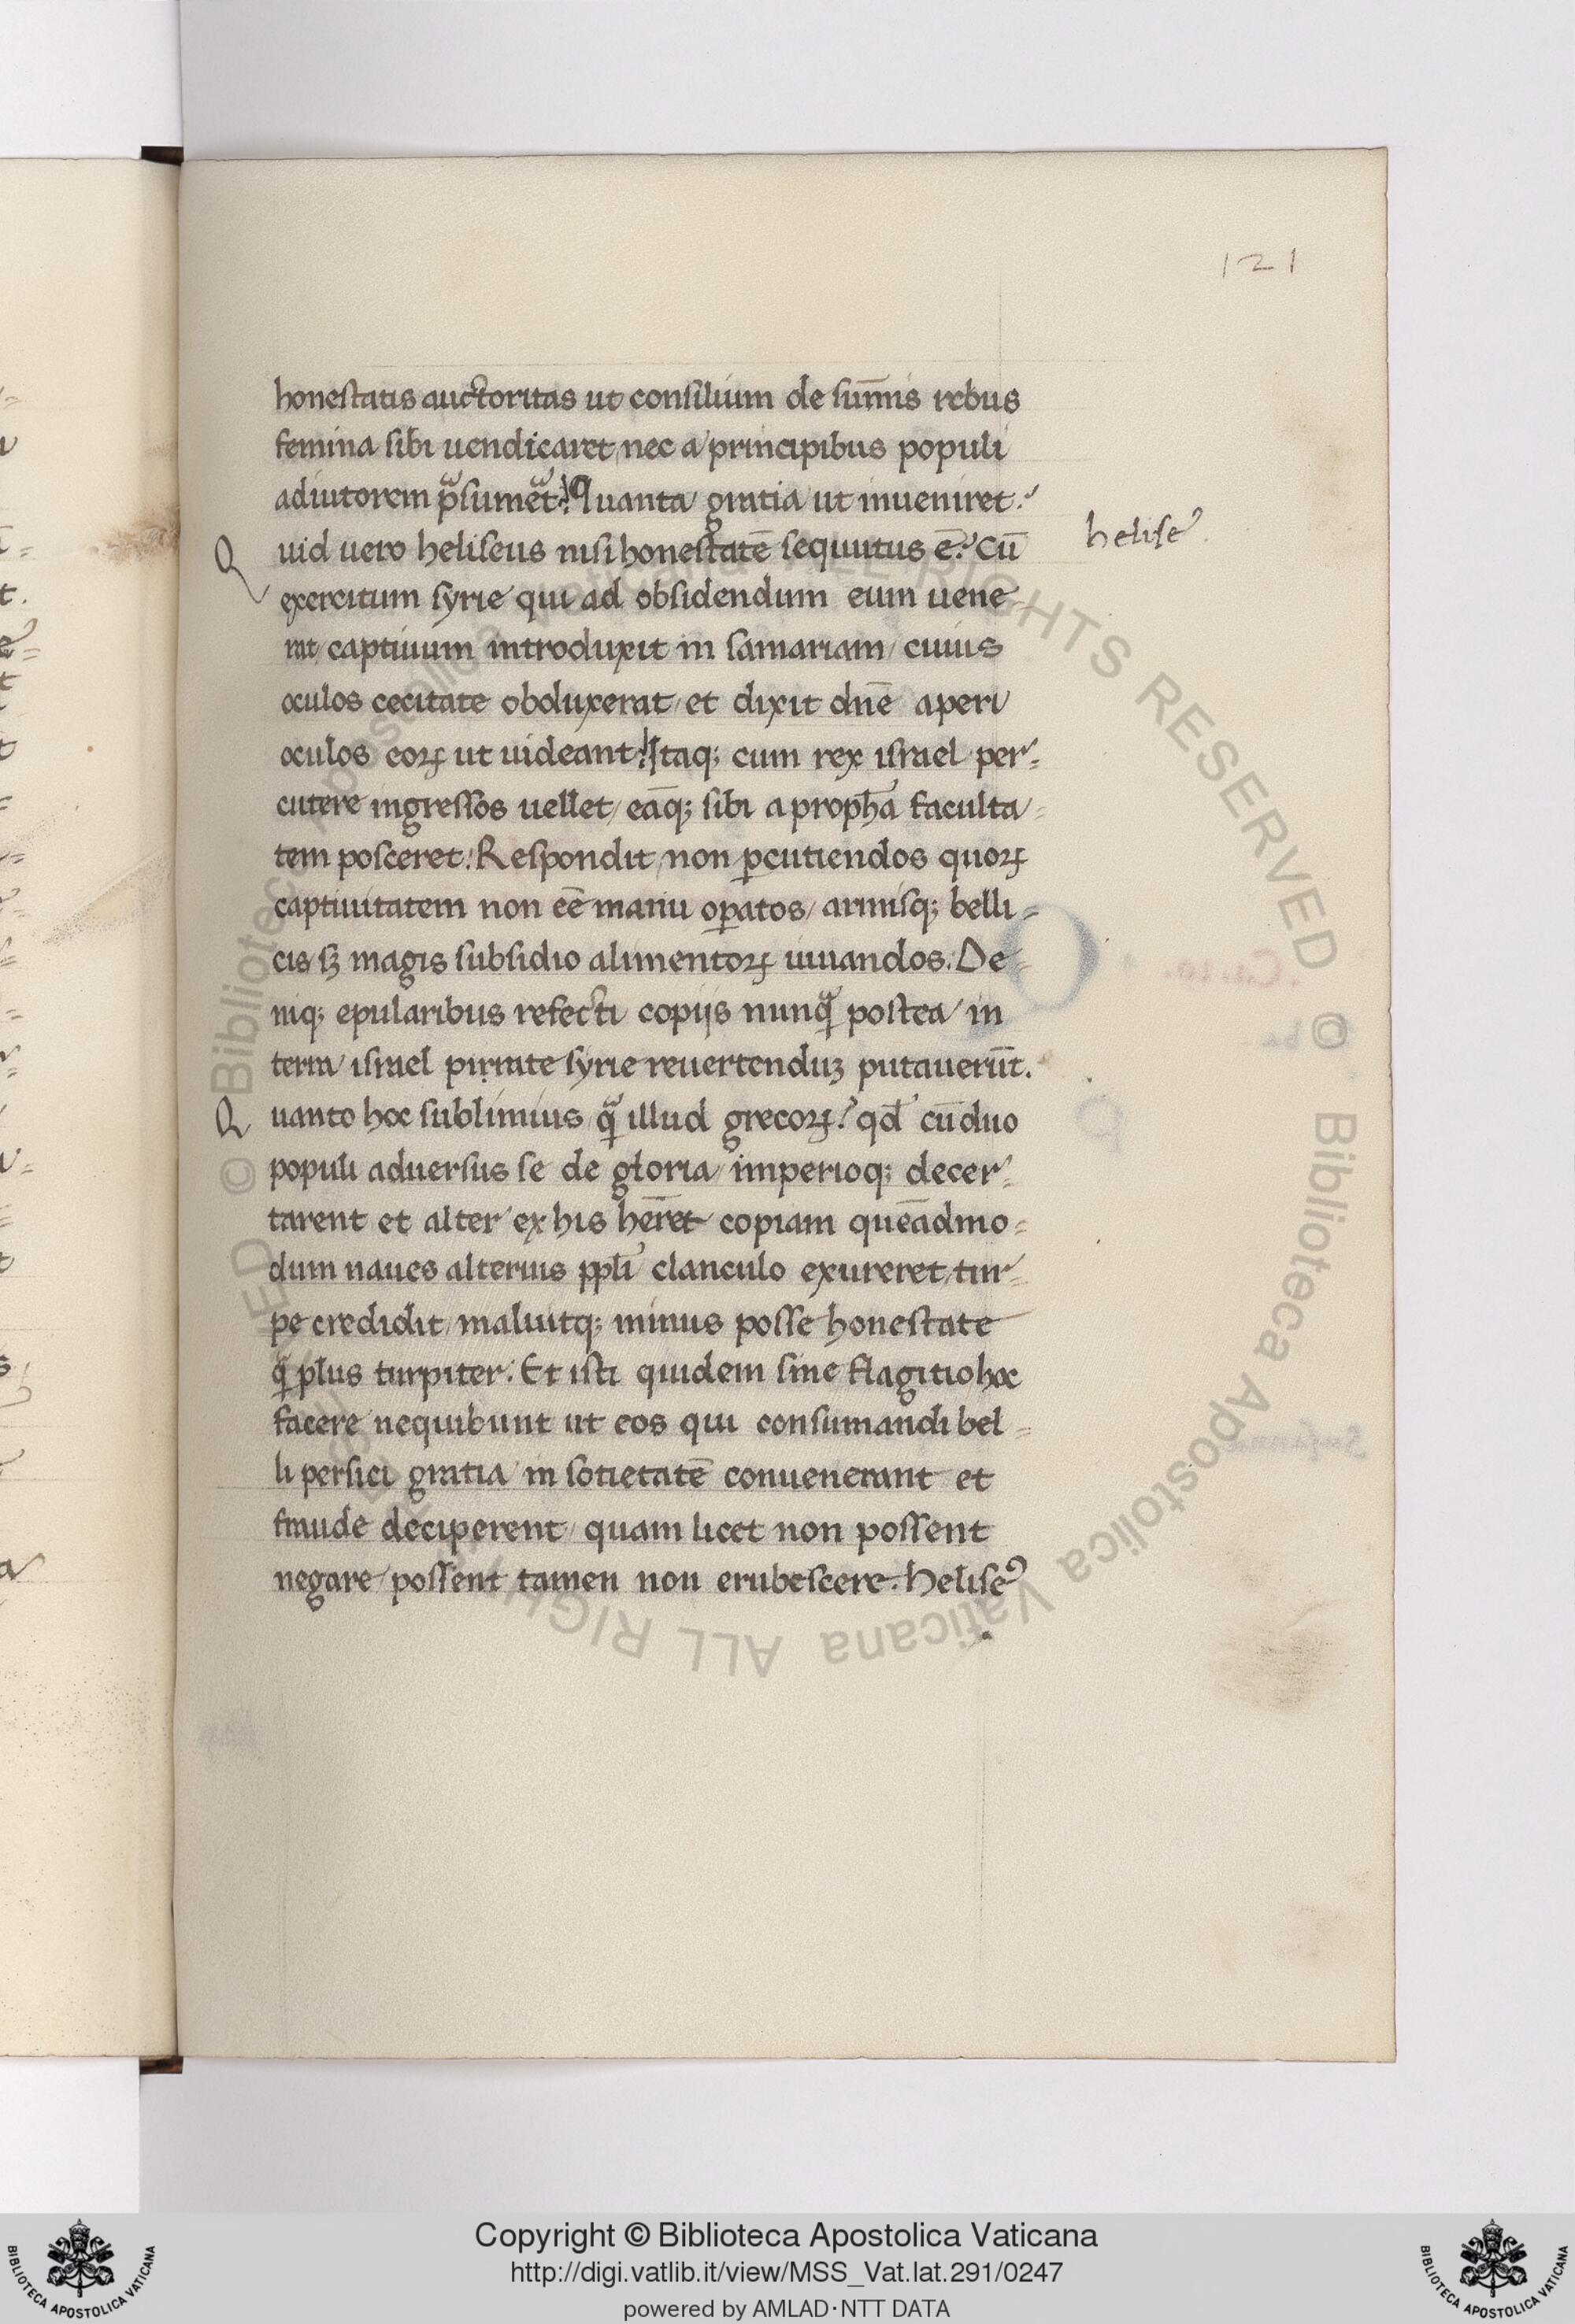 121
honestatis auctoritas ut consilium de sum̄is rebus
femina sibi uendicaret, nec a principibus populi
adiutorem p̄sumeret? Quanta gratia ut inueniret.
Quid uero heliseus nisi honestatē sequutus ē? Cū
helise⁹.
exercitum syrie qui ad obsidendum eum uene
rat/ captiuum introduxit in samariam/ cuius
oculos cecitate obduxerat/ et dixit dn̄e aperi
oculos eoꝝ ut uideant! Itaq; cum rex israel per=
cutere ingressos uellet/ eāq; sibi a proph̄a faculta=
tem posceret: Respondit/ non ꝑcutiendos quoꝝ
captiuitatem non eē manu oꝑatos/ armisq; belli=
cis/ sꝫ magis subsidio alimentoꝝ iuuandos. De=
niq; epularibus refecti copijs nunq̃ postea in
terra israel pirrate syrie reuertenduꝫ putauerūt.
Quanto hoc sublimius q̃ illud grecoꝝ? qd̄ cū duo
populi aduersus se de gloria imperioq; decer=
tarent et alter ex his hēret copiam quēadmo=
dum naues alterius ppl̄i clanculo exureret, tur=
pe credidit/ maluitq; minus posse honestate
q̃ plus turpiter. Et isti quidem sine flagitio hoc
facere nequibunt ut eos qui consumandi bel=
li persici gratia in sotietatē conuenerant et
fraude deciperent/ quam licet non possent
negare/ possent tamen non erubescere. Helise⁹
© Biblioteca Apostolica Vaticana ALL RIGHTS RESERVED
Copyright © Biblioteca Apostolica Vaticana
http://digi.vatlib.it/view/MSS_Vat.lat.291/0247
powered by AMLAD·NTT DATA
BIBLIOTECA APOSTOLICA VATICANA
BIBLIOTECA APOSTOLICA VATICANA